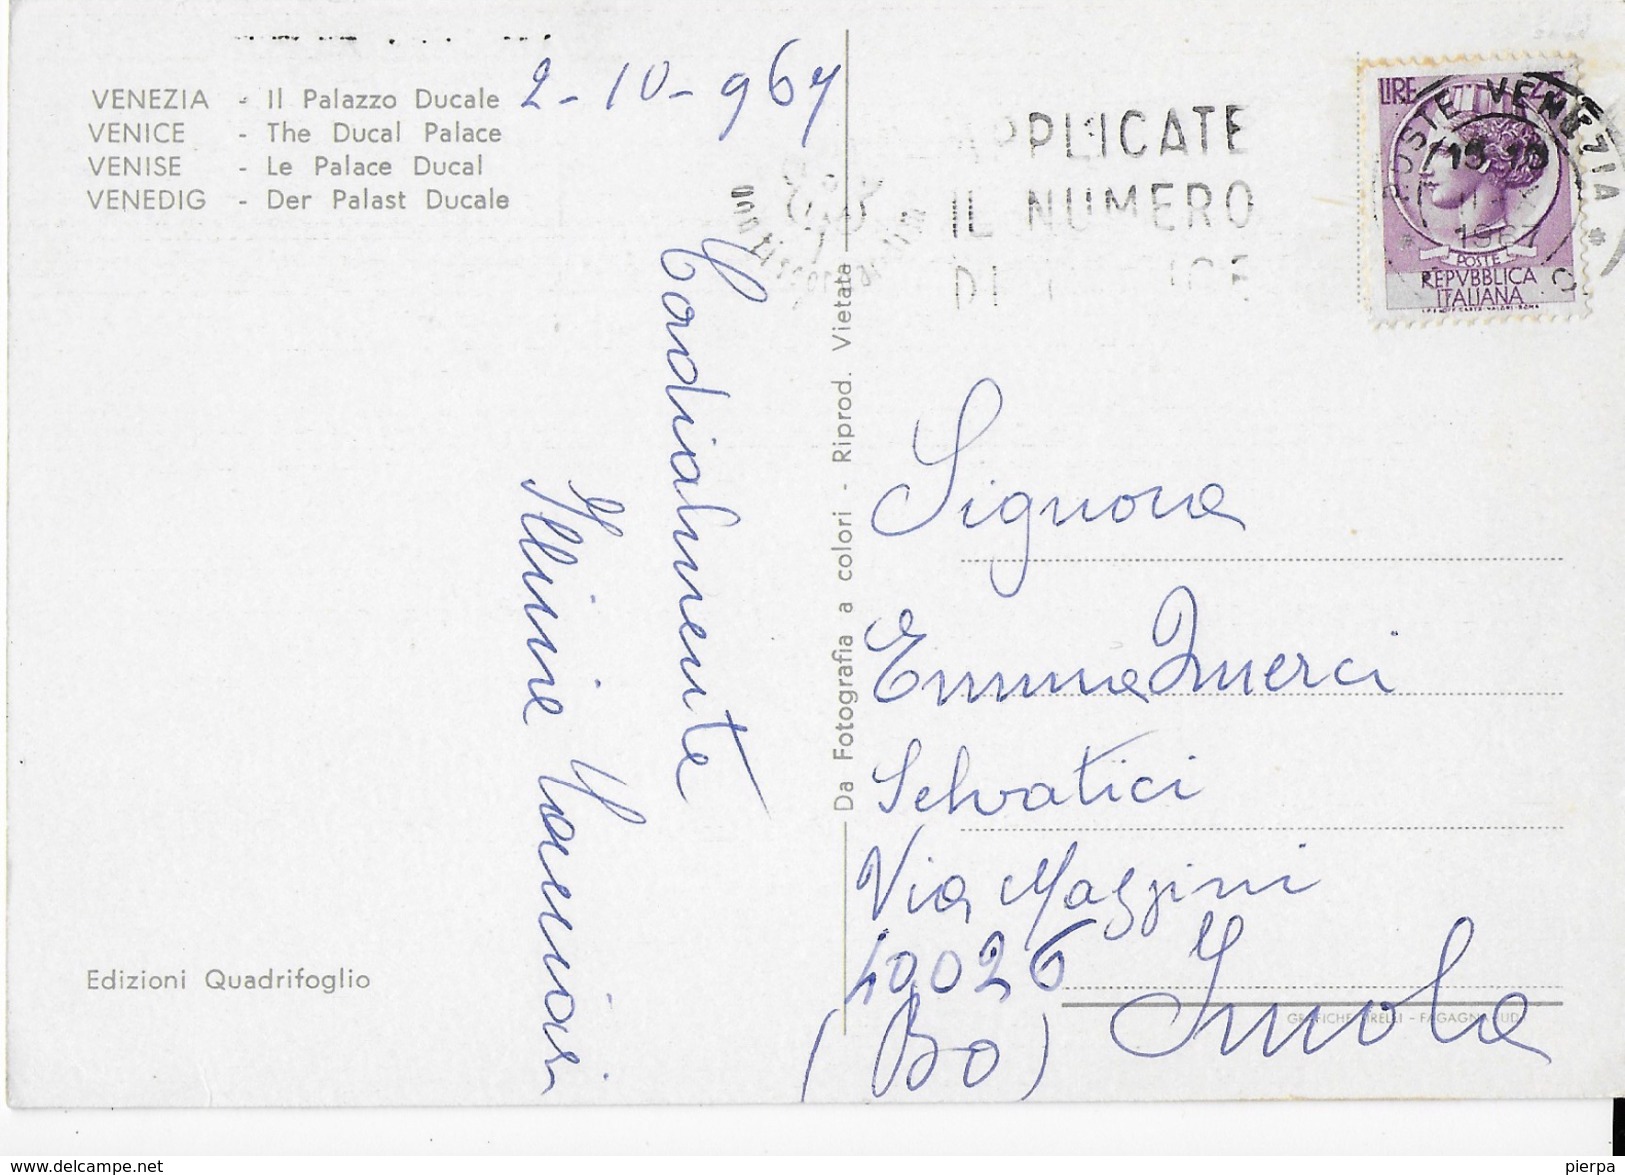 VENEZIA - Il Palazzo Ducale
VENICE - The Ducal Palace
VENISE - Le Palace Ducal
VENEDIG - Der Palast Ducale
2-10-967
Cordialmente
Edizioni Quadrifoglio
Da Fotografia a colori - Riprod. Vietata
PLICATE
IL NUMERO
DI
LIRE
POSTE VENEZIA
1967
POSTE
REPVBBLICA
ITALIANA
Signora
Emma Imerci
Selvatici
Via Mazzini
40026 Imola
(Bo)
GRAFICHE - FAGAGNA
www.delcampe.net
pierpa